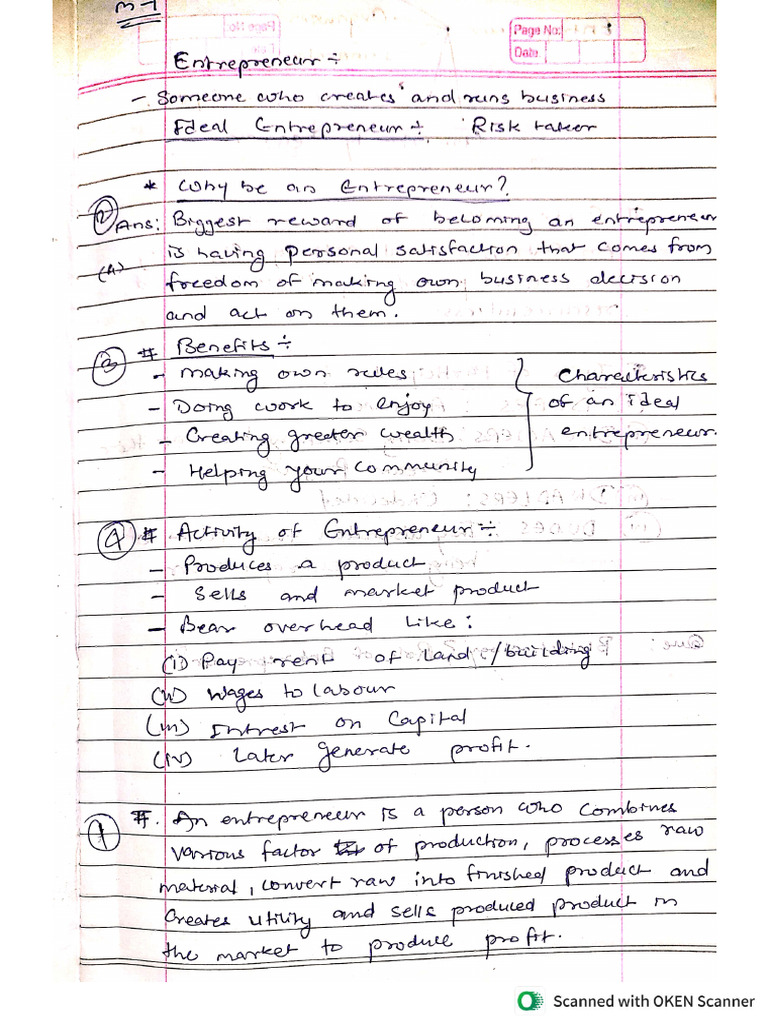 M-1
Page No:
Date
Entrepreneur ÷
- Someone who creates and runs business
Ideal Entrepreneur ÷ Risk taker
* Why be an Entrepreneur?
(2) Ans: Biggest reward of becoming an entrepreneur
(A) is having personal satisfaction that comes from
freedom of making own business decision
and act on them.
(3) # Benefits ÷
- Making own rules
- Doing work to enjoy
- Creating greater wealth
- Helping your community
Charecteristics
of an ideal
entrepreneur.
(4) # Activity of Entrepreneur ÷
- Produces a product
- Sells and market product
- Bear overhead like:
(i) Pay rent of land/building
(ii) Wages to labour
(iii) Intrest on Capital
(iv) Later generate profit.
(1) #. An entrepreneur is a person who combines
various factor of production, processes raw
material, convert raw into finished product and
creates utility and sells produced product in
the market to produce profit.
Scanned with OKEN Scanner